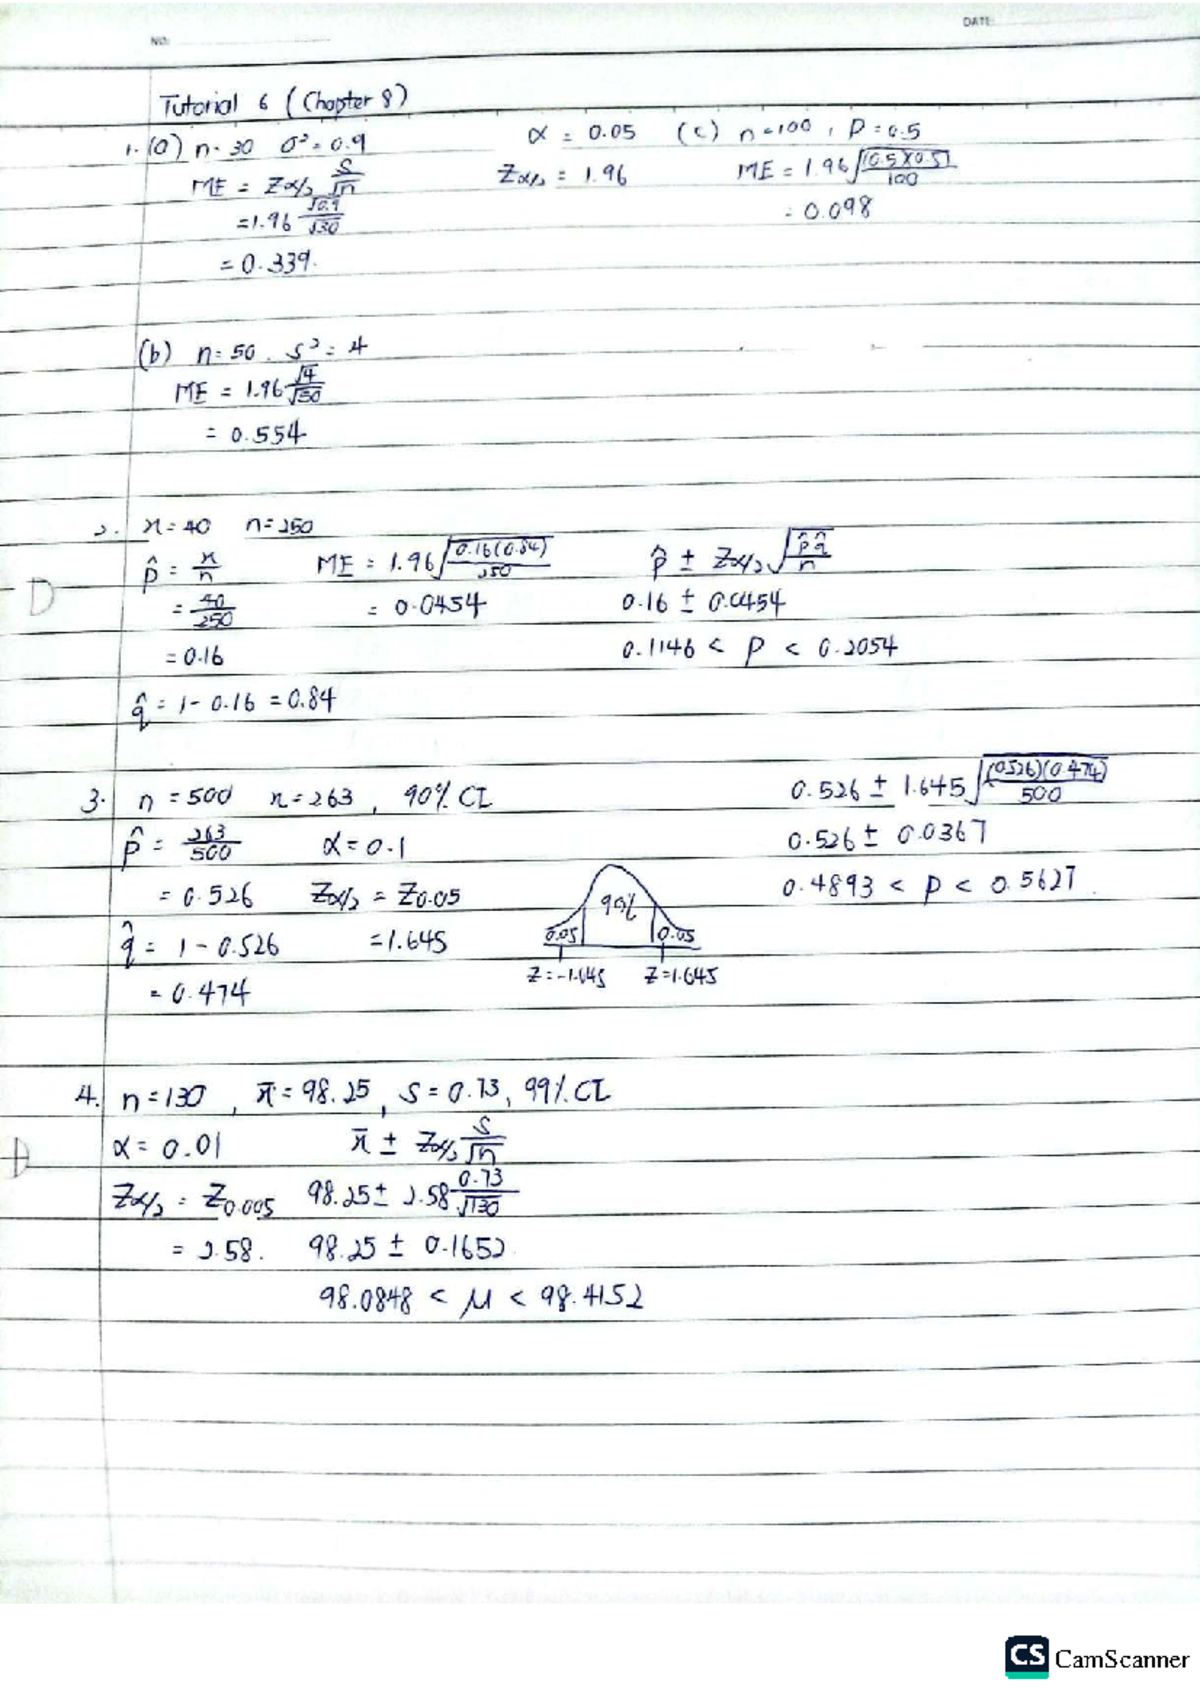 NO:
DATE:
Tutorial 6 (Chapter 8)
1. (a) n = 30 σ² = 0.9
ME = Zα/2 S/√n
= 1.96 √0.9/√30
= 0.339.
α = 0.05
Zα/2 = 1.96
(c) n = 100, p = 0.5
ME = 1.96 √((0.5)(0.5)/100)
= 0.098
(b) n = 50. s² = 4
ME = 1.96 √4/√50
= 0.554
2. x = 40 n = 250
p̂ = x/n
= 40/250
= 0.16
q̂ = 1 - 0.16 = 0.84
ME = 1.96 √(0.16(0.84)/250)
= 0.0454
p̂ ± Zα/2 √(p̂q̂/n)
0.16 ± 0.0454
0.1146 < p < 0.2054
3. n = 500 x = 263, 90% CI
p̂ = 263/500
= 0.526
q̂ = 1 - 0.526
= 0.474
α = 0.1
Zα/2 = Z0.05
= 1.645
90%
0.05 0.05
Z = -1.645 Z = 1.645
0.526 ± 1.645 √((0.526)(0.474)/500)
0.526 ± 0.0367
0.4893 < p < 0.5627.
4. n = 130, x̄ = 98.25, s = 0.73, 99% CI
α = 0.01
Zα/2 = Z0.005
= 2.58.
x̄ ± Zα/2 S/√n
98.25 ± 2.58 0.73/√130
98.25 ± 0.1652
98.0848 < μ < 98.4152
CS CamScanner